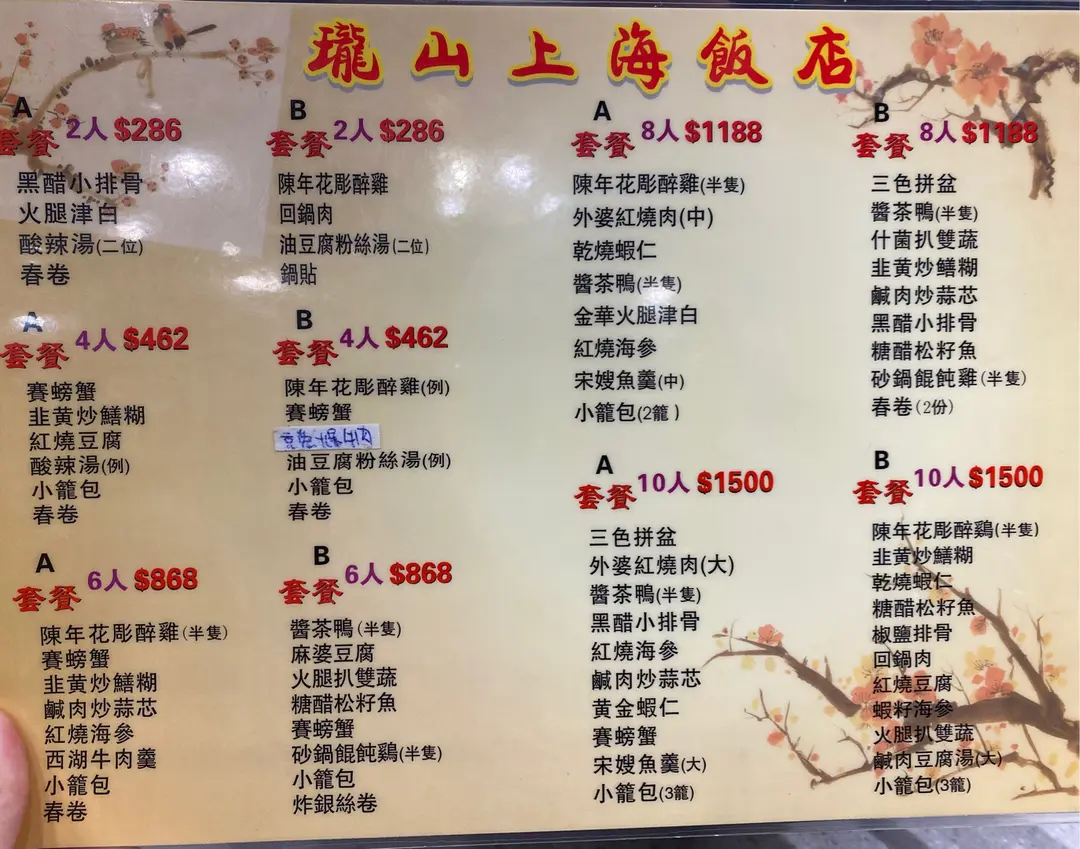 瓏山上海飯店
A
套餐 2人 $286
黑醋小排骨
火腿津白
酸辣湯(二位)
春卷
B
套餐 2人 $286
陳年花彫醉雞
回鍋肉
油豆腐粉絲湯(二位)
鍋貼
A
套餐 4人 $462
賽螃蟹
韭黄炒鱔糊
紅燒豆腐
酸辣湯(例)
小籠包
春卷
B
套餐 4人 $462
陳年花彫醉雞(例)
賽螃蟹
牛肉
油豆腐粉絲湯(例)
小籠包
春卷
A
套餐 6人 $868
陳年花彫醉雞(半隻)
賽螃蟹
韭黄炒鱔糊
鹹肉炒蒜芯
紅燒海參
西湖牛肉羹
小籠包
春卷
B
套餐 6人 $868
醬茶鴨(半隻)
麻婆豆腐
火腿扒雙蔬
糖醋松籽魚
賽螃蟹
砂鍋餛飩鷄(半隻)
小籠包
炸銀絲卷
A
套餐 8人 $1188
陳年花彫醉雞(半隻)
外婆紅燒肉(中)
乾燒蝦仁
醬茶鴨(半隻)
金華火腿津白
紅燒海參
宋嫂魚羹(中)
小籠包(2籠)
B
套餐 8人 $1188
三色拼盆
醬茶鴨(半隻)
什菌扒雙蔬
韭黄炒鱔糊
鹹肉炒蒜芯
黑醋小排骨
糖醋松籽魚
砂鍋餛飩雞(半隻)
春卷(2份)
A
套餐 10人 $1500
三色拼盆
外婆紅燒肉(大)
醬茶鴨(半隻)
黑醋小排骨
紅燒海參
鹹肉炒蒜芯
黄金蝦仁
賽螃蟹
宋嫂魚羹(大)
小籠包(3籠)
B
套餐 10人 $1500
陳年花彫醉鷄(半隻)
韭黄炒鱔糊
乾燒蝦仁
糖醋松籽魚
椒鹽排骨
回鍋肉
紅燒豆腐
蝦籽海參
火腿扒雙蔬
鹹肉豆腐湯(大)
小籠包(3籠)